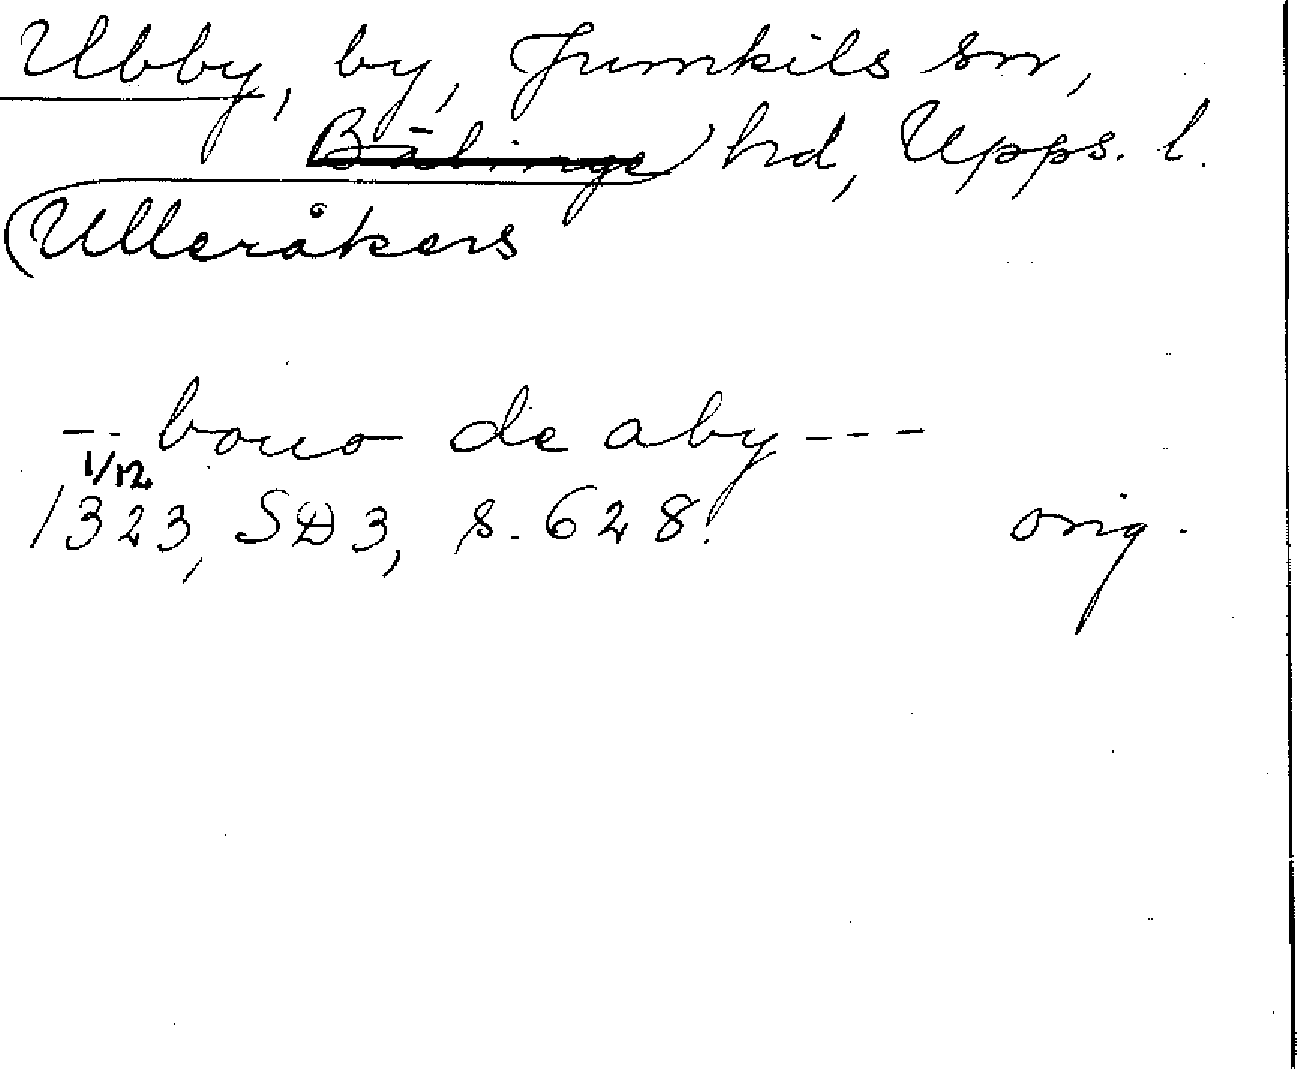 Ubby, by, Jumkils sn,
Bälinge hd, Upps. l.
Ulleråkers
-- bouo de aby ---
1/12
1323, SD3, s. 628. orig.